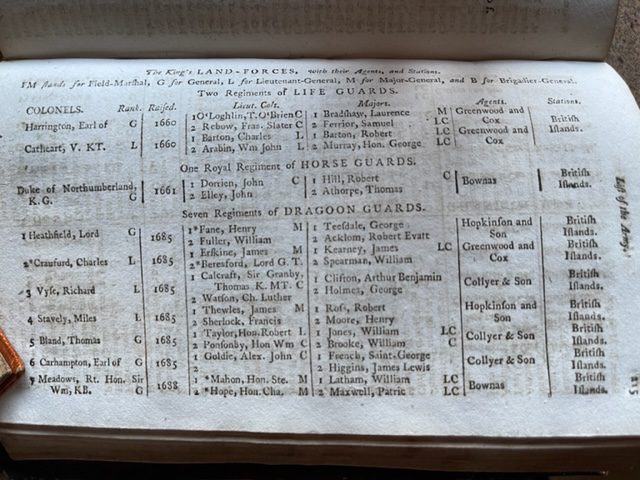 The King's LAND-FORCES, with their Agents, and Stations.
FM stands for Field-Marshal, G for General, L for Lieutenant-General, M for Major-General, and B for Brigadier-General.
Two Regiments of LIFE GUARDS.
COLONELS. Rank. Raised. Lieut. Cols. Majors. Agents. Stations.
Harrington, Earl of G 1660 1 O'Loghlin, T. O'Brien C 1 Bradshaw, Laurence M Greenwood and British
2 Rebow, Fras. Slater C 2 Ferrior, Samuel LC Cox Islands.
Cathcart, V. KT. L 1660 1 Barton, Charles L 1 Barton, Robert LC Greenwood and
2 Arabin, Wm John L 2 Murray, Hon. George LC Cox
One Royal Regiment of HORSE GUARDS.
Duke of Northumberland, 1661 1 Dorrien, John C 1 Hill, Robert C Bownas British
K.G. G 2 Elley, John 2 Athorpe, Thomas Islands.
Seven Regiments of DRAGOON GUARDS.
1 Heathfield, Lord G 1685 1 *Fane, Henry M 1 Teesdale, George Hopkinson and British
2 Fuller, William 2 Acklom, Robert Evatt Son Islands.
2 *Craufurd, Charles L 1685 1 Erskine, James M 1 Kearney, James LC Greenwood and British
2 *Beresford, Lord G. T. 2 Spearman, William Cox Islands.
3 Vyse, Richard L 1685 1 Calcraft, Sir Granby, 1 Clifton, Arthur Benjamin Collyer & Son British
Thomas K. MT. C 2 Holmes, George Islands.
2 Watson, Ch. Luther
4 Stavely, Miles L 1685 1 Thewles, James M 1 Ross, Robert Hopkinson and British
2 Sherlock, Francis 2 Moore, Henry Son Islands.
5 Bland, Thomas G 1685 1 Taylor, Hon. Robert L 1 Jones, William LC Collyer & Son British
2 Ponsonby, Hon Wm C 2 Brooke, William C Islands.
6 Carhampton, Earl of G 1685 1 Goldie, Alex. John C 1 French, Saint-George Collyer & Son British
2 2 Higgins, James Lewis Islands.
7 Meadows, Rt. Hon. Sir 1688 1 *Mahon, Hon. Ste. M 1 Latham, William LC Bownas British
Wm, KB. G 2 *Hope, Hon. Cha. M 2 Maxwell, Patric LC Islands.
List of the Army.